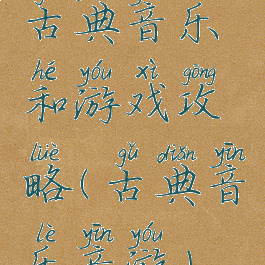 古典音乐
hé yóu xì gōng
和游戏攻
lüè ( gǔ diǎn yīn
略(古典音
lè yīn yóu
乐音游)